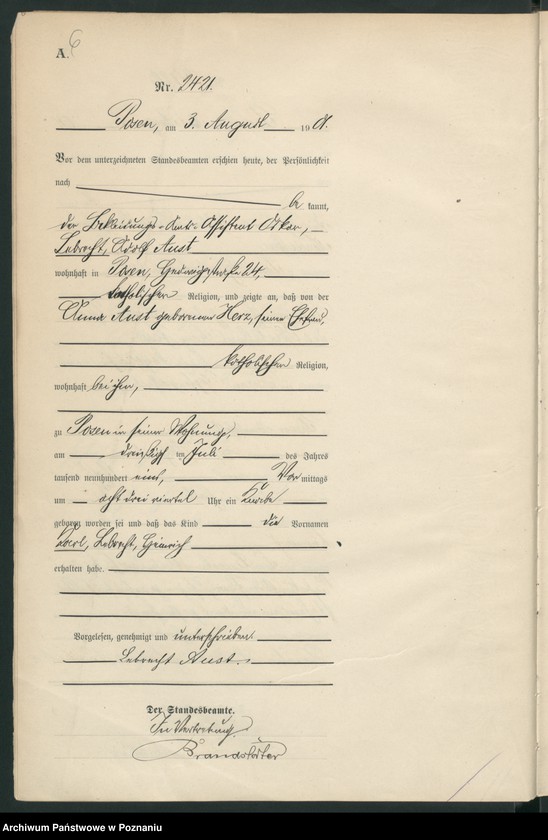 A. 6
Nr. 2421.
Posen, am 3. August 1901.
Vor dem unterzeichneten Standesbeamten erschien heute, der Persönlichkeit
nach
be kannt,
der Bekleidungs-Amts-Assistent Oskar,
Lebrecht, Adolf Aust
wohnhaft in Posen, Hedwigstraße 24,
katholischer Religion, und zeigte an, daß von der
Anna Aust geborenen Herz, seiner Ehefrau,
katholischer Religion,
wohnhaft bei ihm,
zu Posen in seiner Wohnung,
am dreißigsten Juli des Jahres
tausend neunhundert eins, Vor mittags
um acht drei viertel Uhr ein Knabe
geboren worden sei und daß das Kind die Vornamen
Karl, Lebrecht, Heinrich
erhalten habe.
Vorgelesen, genehmigt und unterschrieben.
Lebrecht Aust.
Der Standesbeamte.
In Vertretung.
Brandstäter
Archiwum Państwowe w Poznaniu